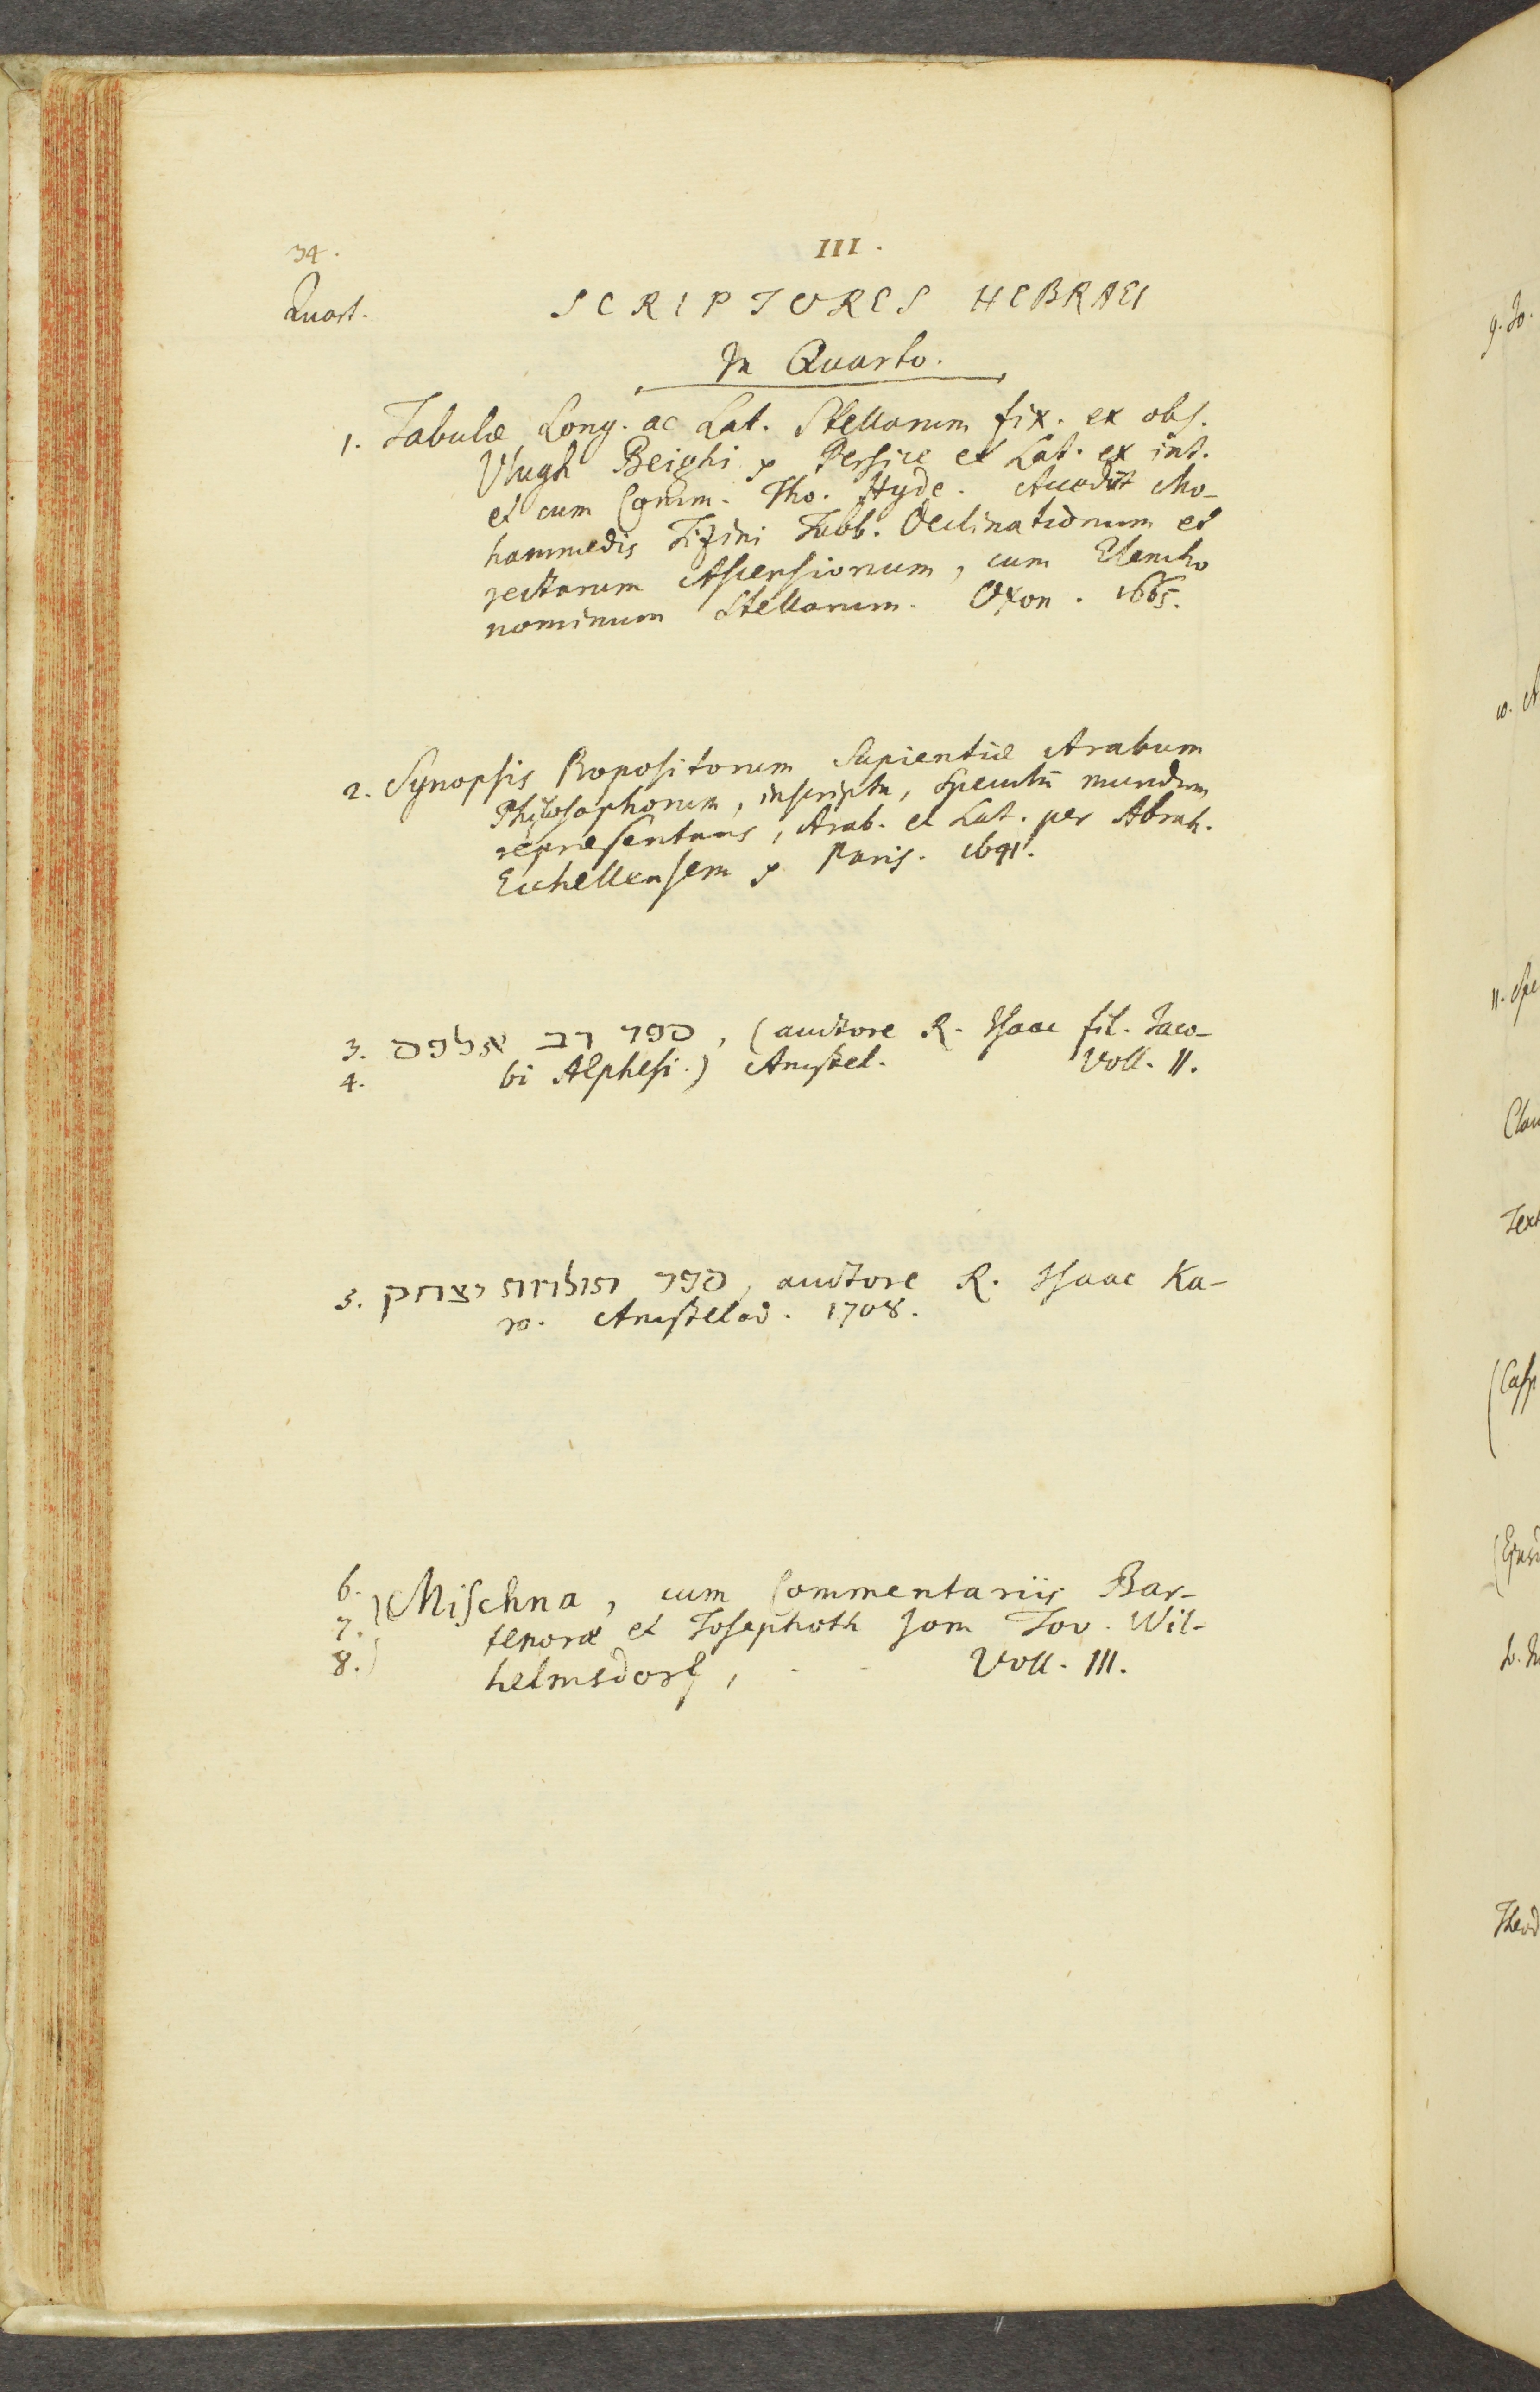 34.
III.
Quart.
SCRIPTORES HEBRAEI
In Quarto.
1. Tabulæ Long. ac Lat. Stellarum fix. ex obs.
Ulugh Beighi, Persice et Lat. ex int.
et cum Comm. Tho. Hyde. Accedũt Mo-
hammedis Tizini Tabb. Declinationum et
rectarum Ascensionum, cum Elencho
nominum Stellarum. Oxon. 1665.
2. Synopsis Propositorum Sapientiæ Arabum
Philosophorum, inscripta, Speculũ mundum
repræsentans, Arab. et Lat. per Abrah.
Ecchellensem, Paris. 1641.
3. ספר רב אלפס, (auctore R. Isaac fil. Jaco-
4. bi Alphesi.) Amstel. Voll. II.
5. ספר תולדות יצחק, auctore R. Isaac Ka-
ro. Amstelod. 1708.
6. Mischna, cum Commentariis Bar-
7. tenoræ et Tosephoth Jom Tov. Wil-
8. helmsdorf, - - Voll. III.
9. Jo.
10.
11. Spe
Clau
Text
(Casp
Theod